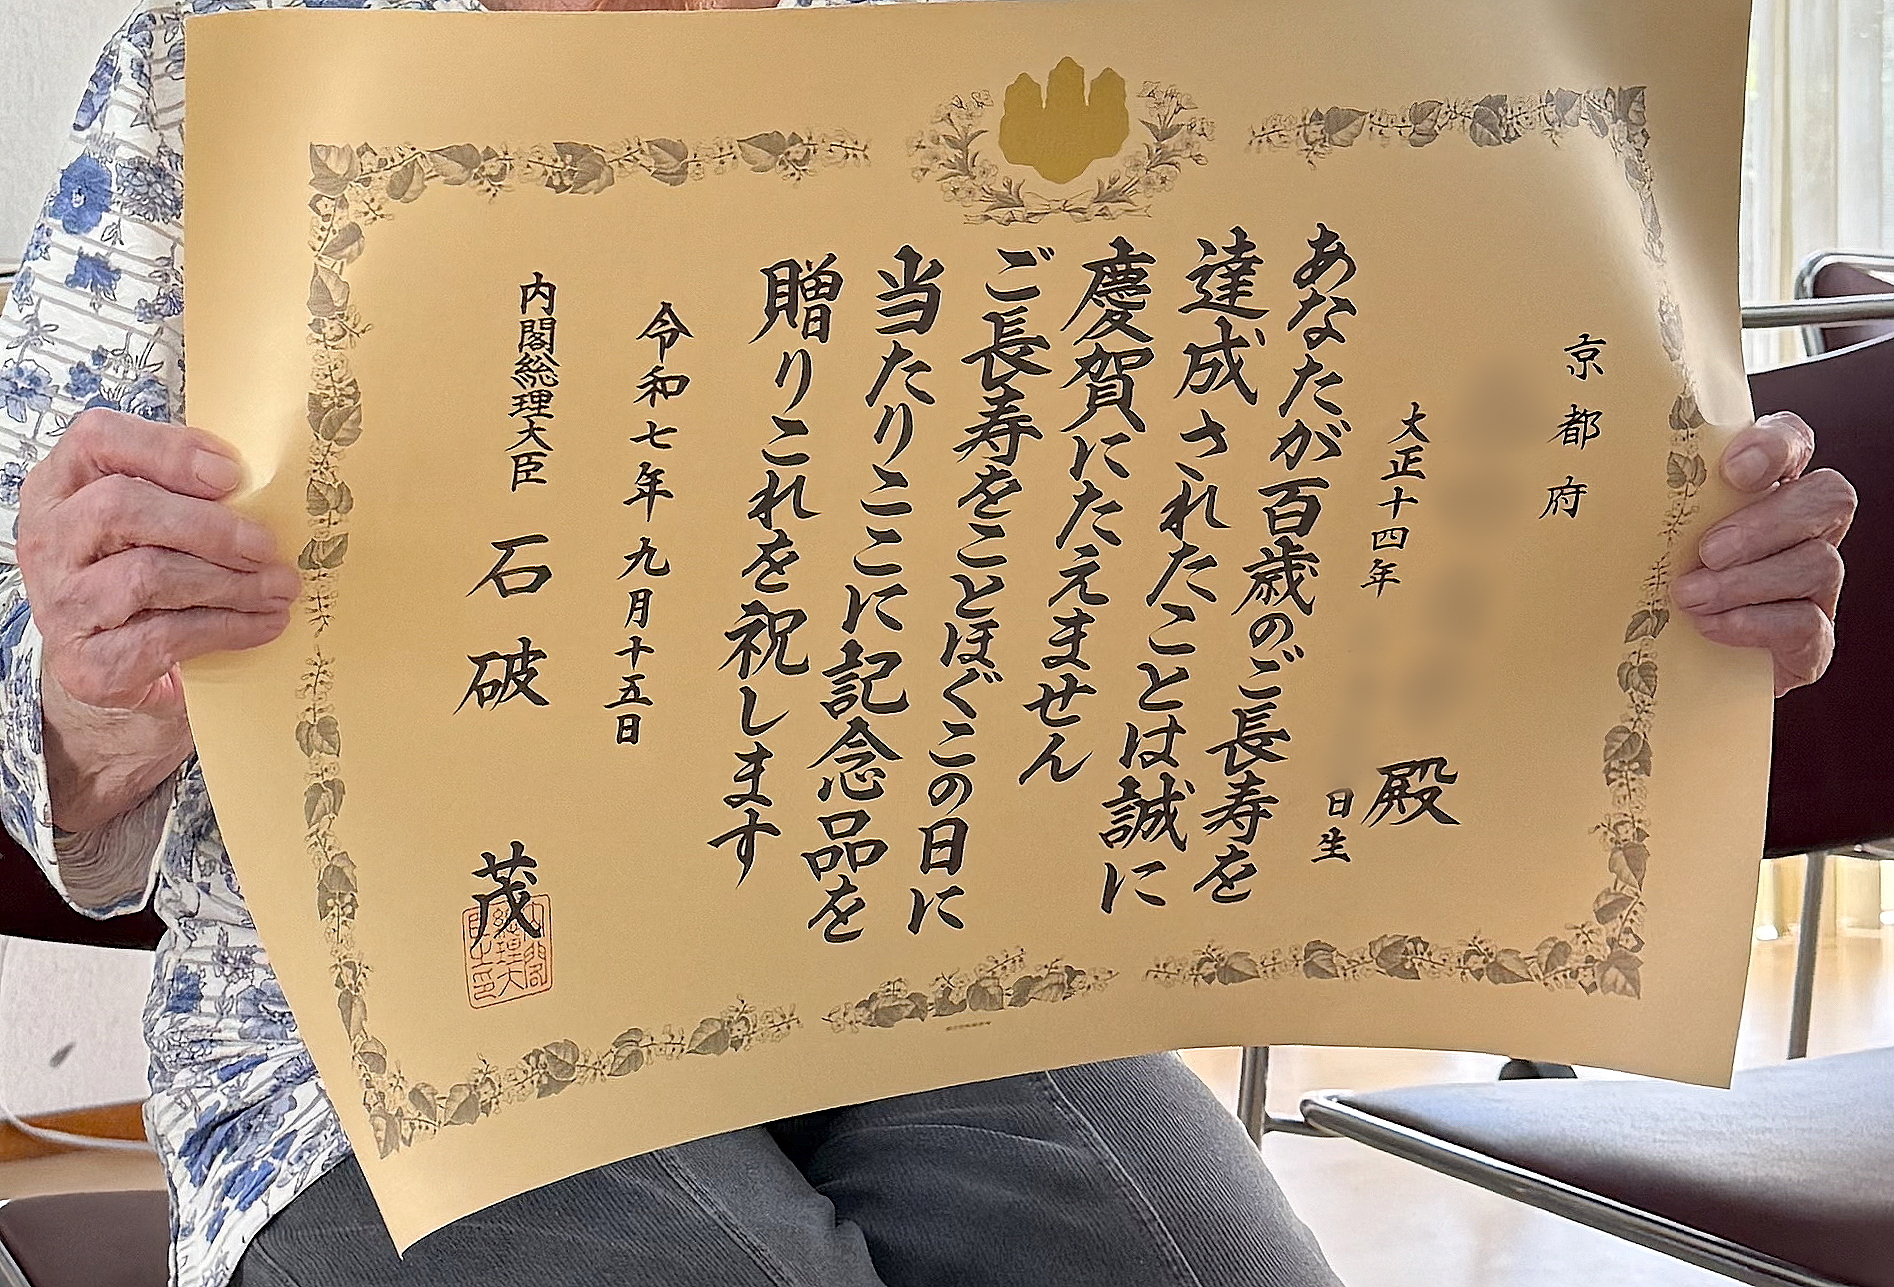 京都府
殿
大正十四年
日生
あなたが百歳のご長寿を
達成されたことは誠に
慶賀にたえません
ご長寿をことほぐこの日に
当たりここに記念品を
贈りこれを祝します
令和七年九月十五日
内閣総理大臣 石破 茂
内閣総理大臣之印